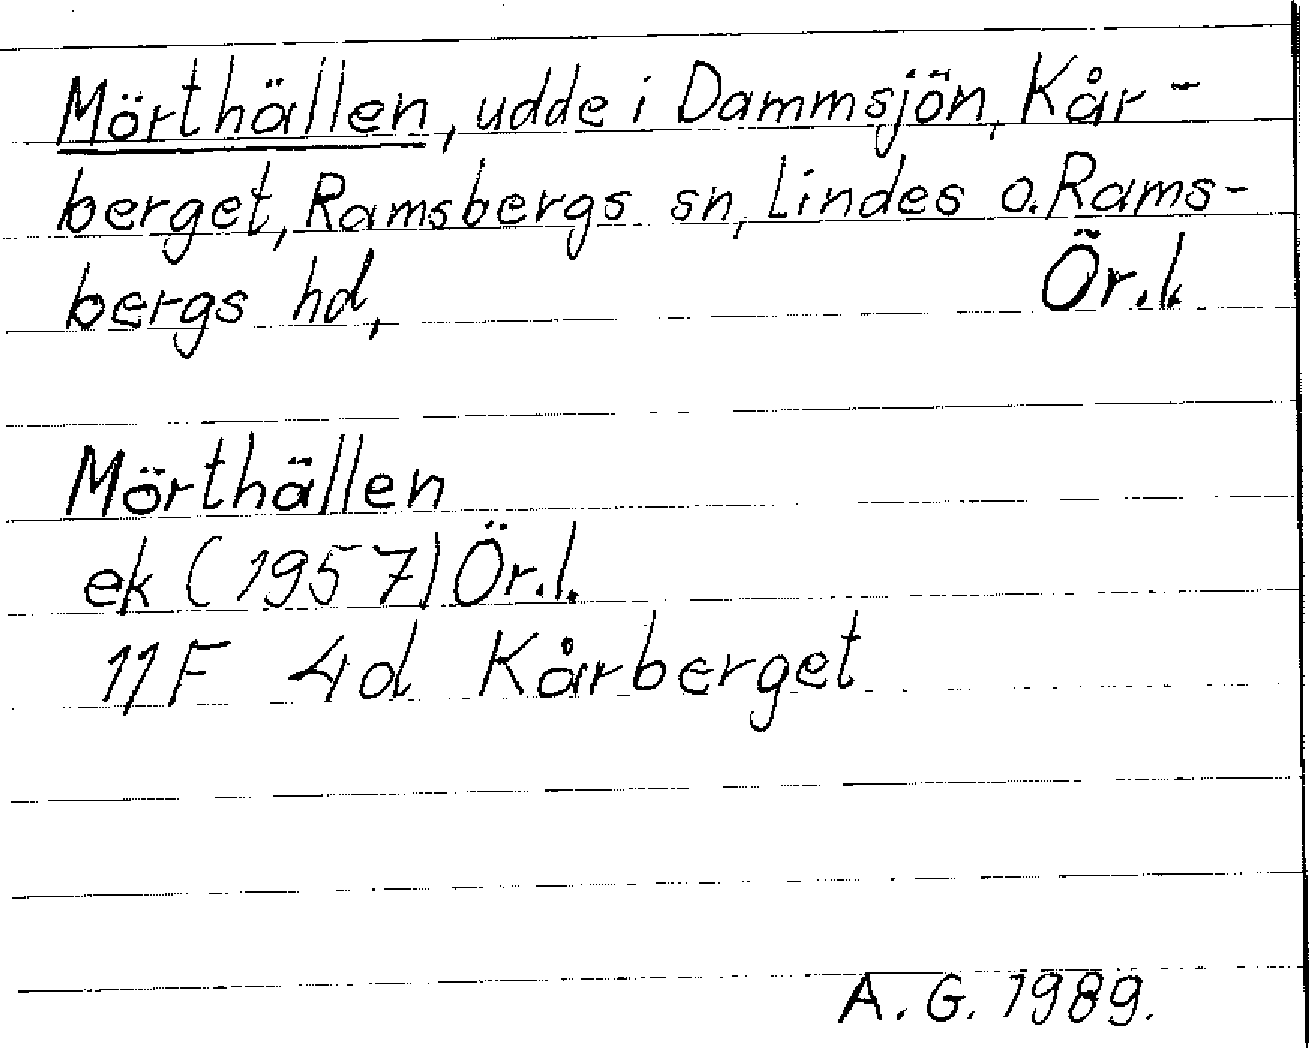 Mörthällen, udde i Dammsjön, Kår-
berget, Ramsbergs sn, Lindes o. Rams-
bergs hd, Ör.l.
Mörthällen
ek (1957) Ör.l.
11F 4d Kårberget
A. G. 1989.